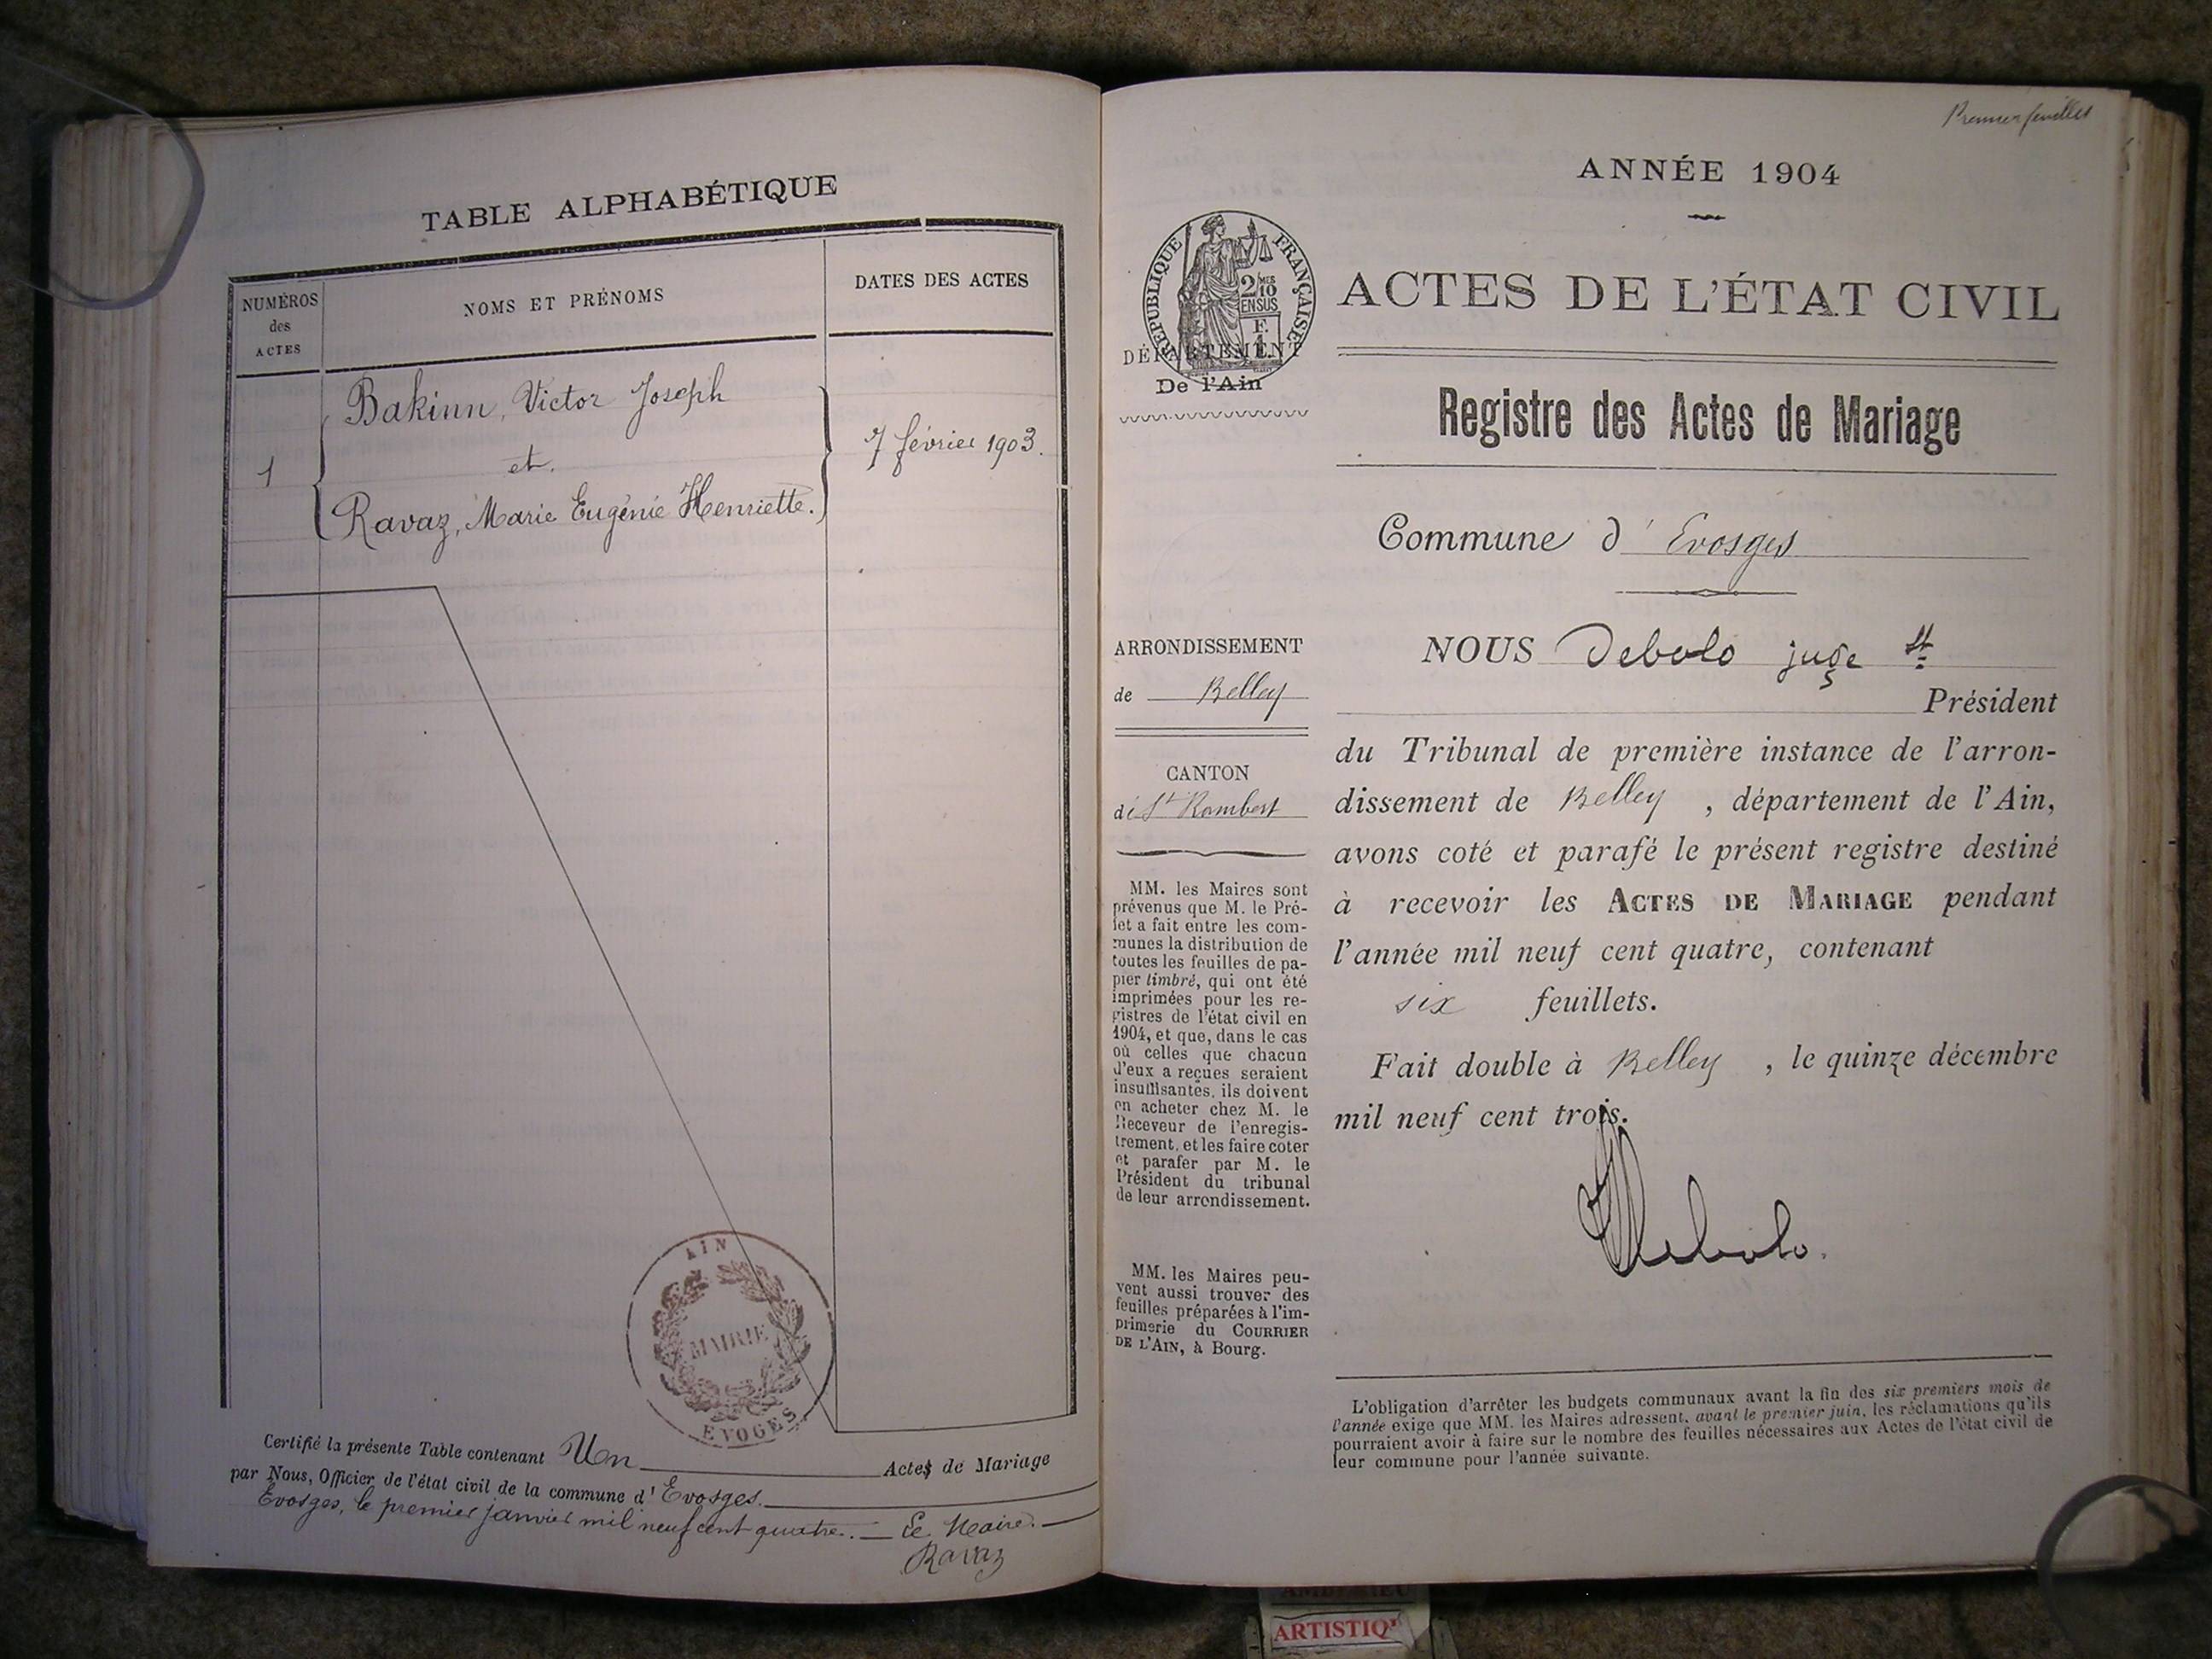 TABLE ALPHABÉTIQUE
NUMÉROS
des
ACTES
NOMS ET PRÉNOMS
DATES DES ACTES
1
Bakinn, Victor Joseph
et
Ravaz, Marie Eugénie Henriette.
7 février 1903.
AIN
MAIRIE
EVOGES
Certifié la présente Table contenant Un Actes de Mariage
par Nous, Officier de l'état civil de la commune d' Evosges.
Evosges, le premier janvier mil neuf cent quatre. — Le Maire. —
Ravaz
Premier feuillet
ANNÉE 1904
RÉPUBLIQUE FRANÇAISE
2 MES
10
EN SUS
F.
1.
DÉPARTEMENT
De l'Ain
ACTES DE L'ÉTAT CIVIL
Registre des Actes de Mariage
Commune d' Evosges
ARRONDISSEMENT
de Belley
CANTON
de St Rambert
MM. les Maires sont
prévenus que M. le Pré-
fet a fait entre les com-
munes la distribution de
toutes les feuilles de pa-
pier timbré, qui ont été
imprimées pour les re-
gistres de l'état civil en
1904, et que, dans le cas
où celles que chacun
d'eux a reçues seraient
insuffisantes, ils doivent
en acheter chez M. le
Receveur de l'enregis-
trement, et les faire coter
et parafer par M. le
Président du tribunal
de leur arrondissement.
MM. les Maires peu-
vent aussi trouver des
feuilles préparées à l'im-
primerie du COURRIER
DE L'AIN, à Bourg.
NOUS Debolo juge st
Président
du Tribunal de première instance de l'arron-
dissement de Belley , département de l'Ain,
avons coté et parafé le présent registre destiné
à recevoir les ACTES DE MARIAGE pendant
l'année mil neuf cent quatre, contenant
six feuillets.
Fait double à Belley , le quinze décembre
mil neuf cent trois.
Debolo.
L'obligation d'arrêter les budgets communaux avant la fin des six premiers mois de
l'année exige que MM. les Maires adressent, avant le premier juin, les réclamations qu'ils
pourraient avoir à faire sur le nombre des feuilles nécessaires aux Actes de l'état civil de
leur commune pour l'année suivante.
AMBERIEU
ARTISTIQ